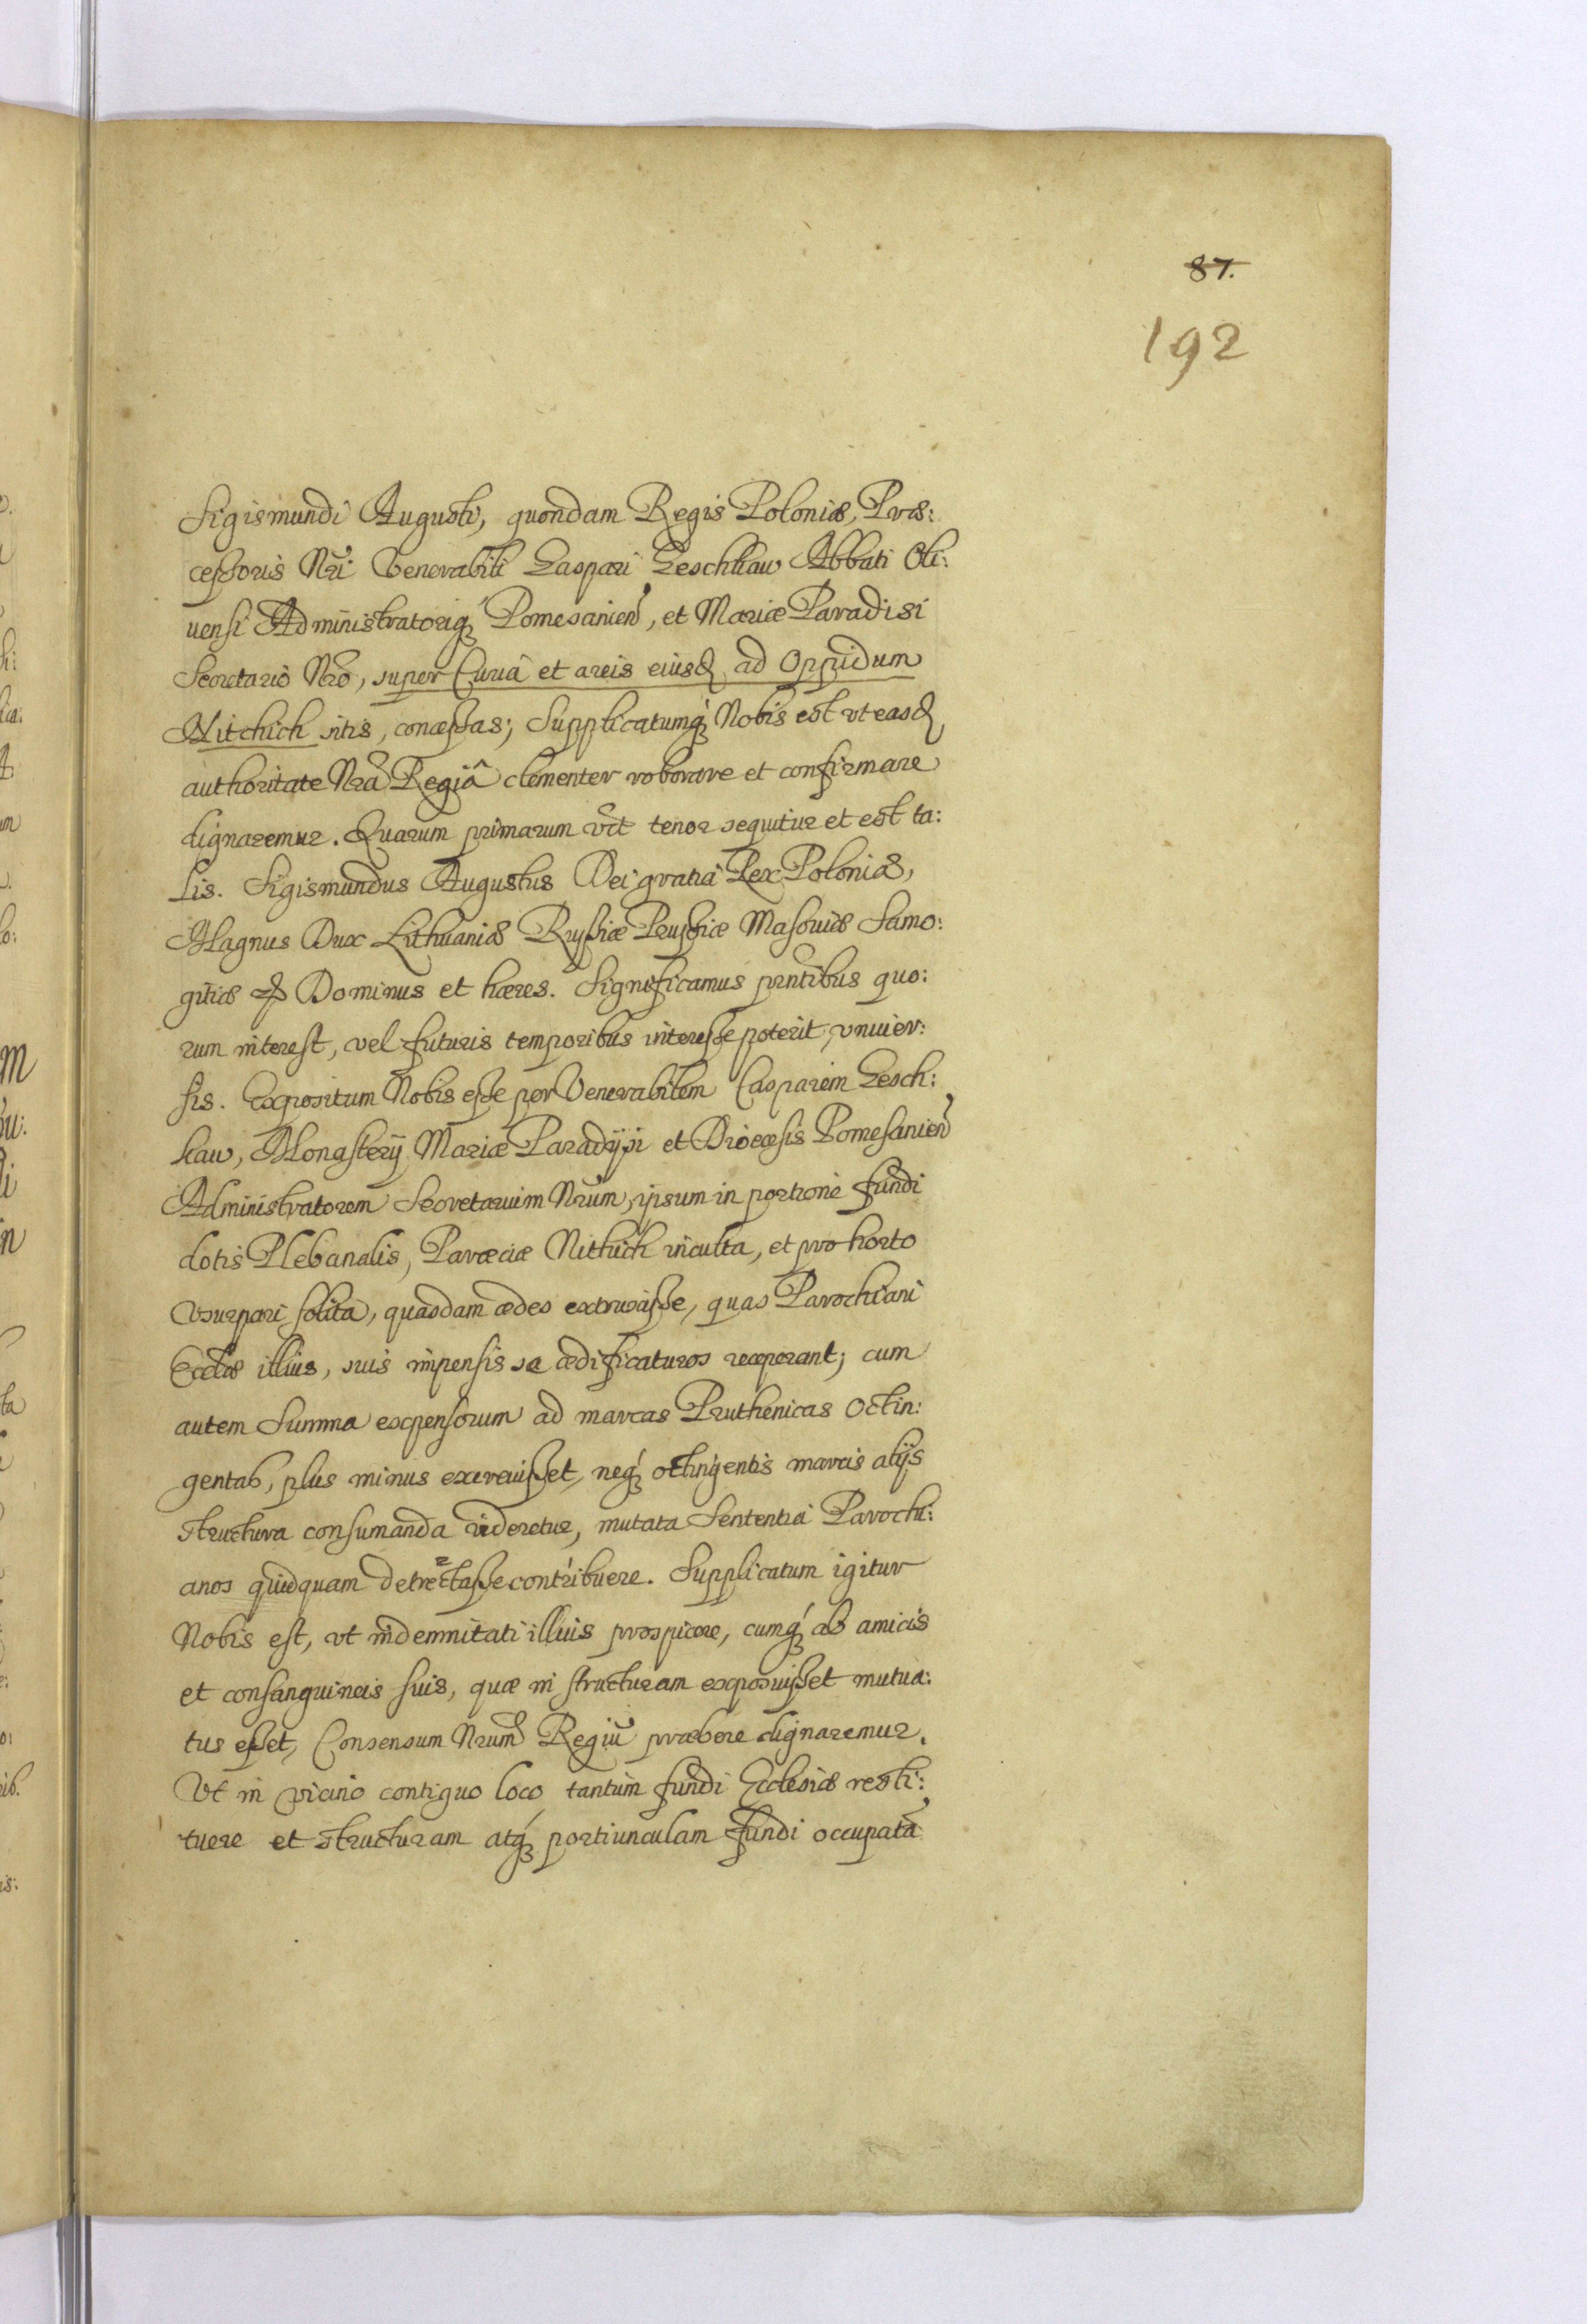 87.
192
Sigismundi Augusti, quondam Regis Poloniæ, Præ:
cessoris Nri Venerabili Caspari Zeschkau Abbati Oli:
uensi Administratoriq́ Pomesanien, et Mariæ Paradisi
Secretario Nro, super Curiâ et areis eiusd ad Oppidum
Nitchich sitis, concessas; Supplicatumq́ Nobis est vt easd
authoritate Nrã Regiâ clementer roborare et confirmare
dignaremur. Quarum primarum tenor sequitur et est ta:
lis. Sigismundus Augustus Dei gratiâ Rex Poloniæ,
Magnus Dux Lithuaniæ Russiæ Prussiæ Masouiæ Samo:
gitiæ Dominus et hæres. Significamus pntibus quo:
rum interest, vel futuris temporibus interesse poterit, vniuer:
sis. Expositum Nobis esse per Venerabilem Casparem Zesch:
kau, Monasterij Mariæ Paradysi et Dioecesis Pomesanien
Administratorem Secretarium Nrum, ipsum in portione fundi
dotis Plebanalis, Paræciæ Nithich inculta, et pro horto
vsurpari solita, quasdam ædes extruxisse, quas Parochiani
Ecclæ illius, suis impensis se ædificaturos receperant; cum
autem Summa expensorum ad marcas Pruthenicas Octin:
gentas, plus minus excreuisset, neq́ octingentis marcis alijs
structura consumanda videretur, mutata Sententia Parochi:
anos quidquam detrectasse contribuere. Supplicatum igitur
Nobis est, vt indemnitati illius prospicere, cumq́ ab amicis
et consanguineis suis, quæ in structuram exposuisset mutua:
tus esset, Consensum Nrum Regiũ præbere dignaremur.
Vt in vicino contiguo loco tantum fundi Ecclesiæ resti:
tuere et structuram atq́ portiunculam fundi occupatã